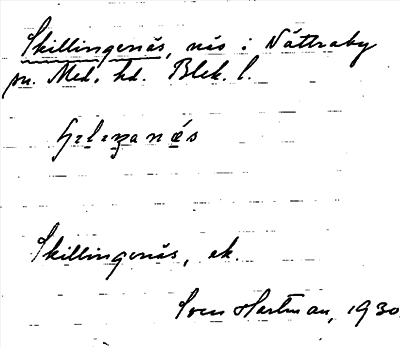 Skillingenäs, näs i Nättraby
sn. Med. hd. Blek. l.
Skillingenäs, ek.
Sven Hartman, 1930